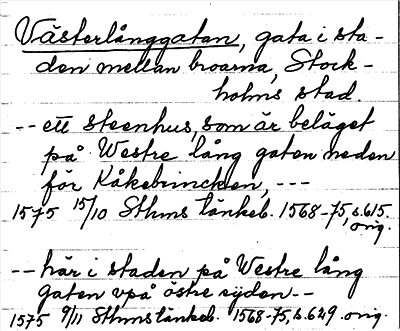 Västerlånggatan, gata i sta-
den mellan broarna, Stock-
holms stad.
-- ett steenhus, som är beläget
på Westre lång gaten neden
för Kåkebrincken, ---
1575 15/10 Sthms tänkeb. 1568-75, s. 615,
orig.
-- här i staden på Westre lång
gaten vpå östre sijden --
1575 9/11 Sthms tänkeb. 1568-75, s. 629. orig.